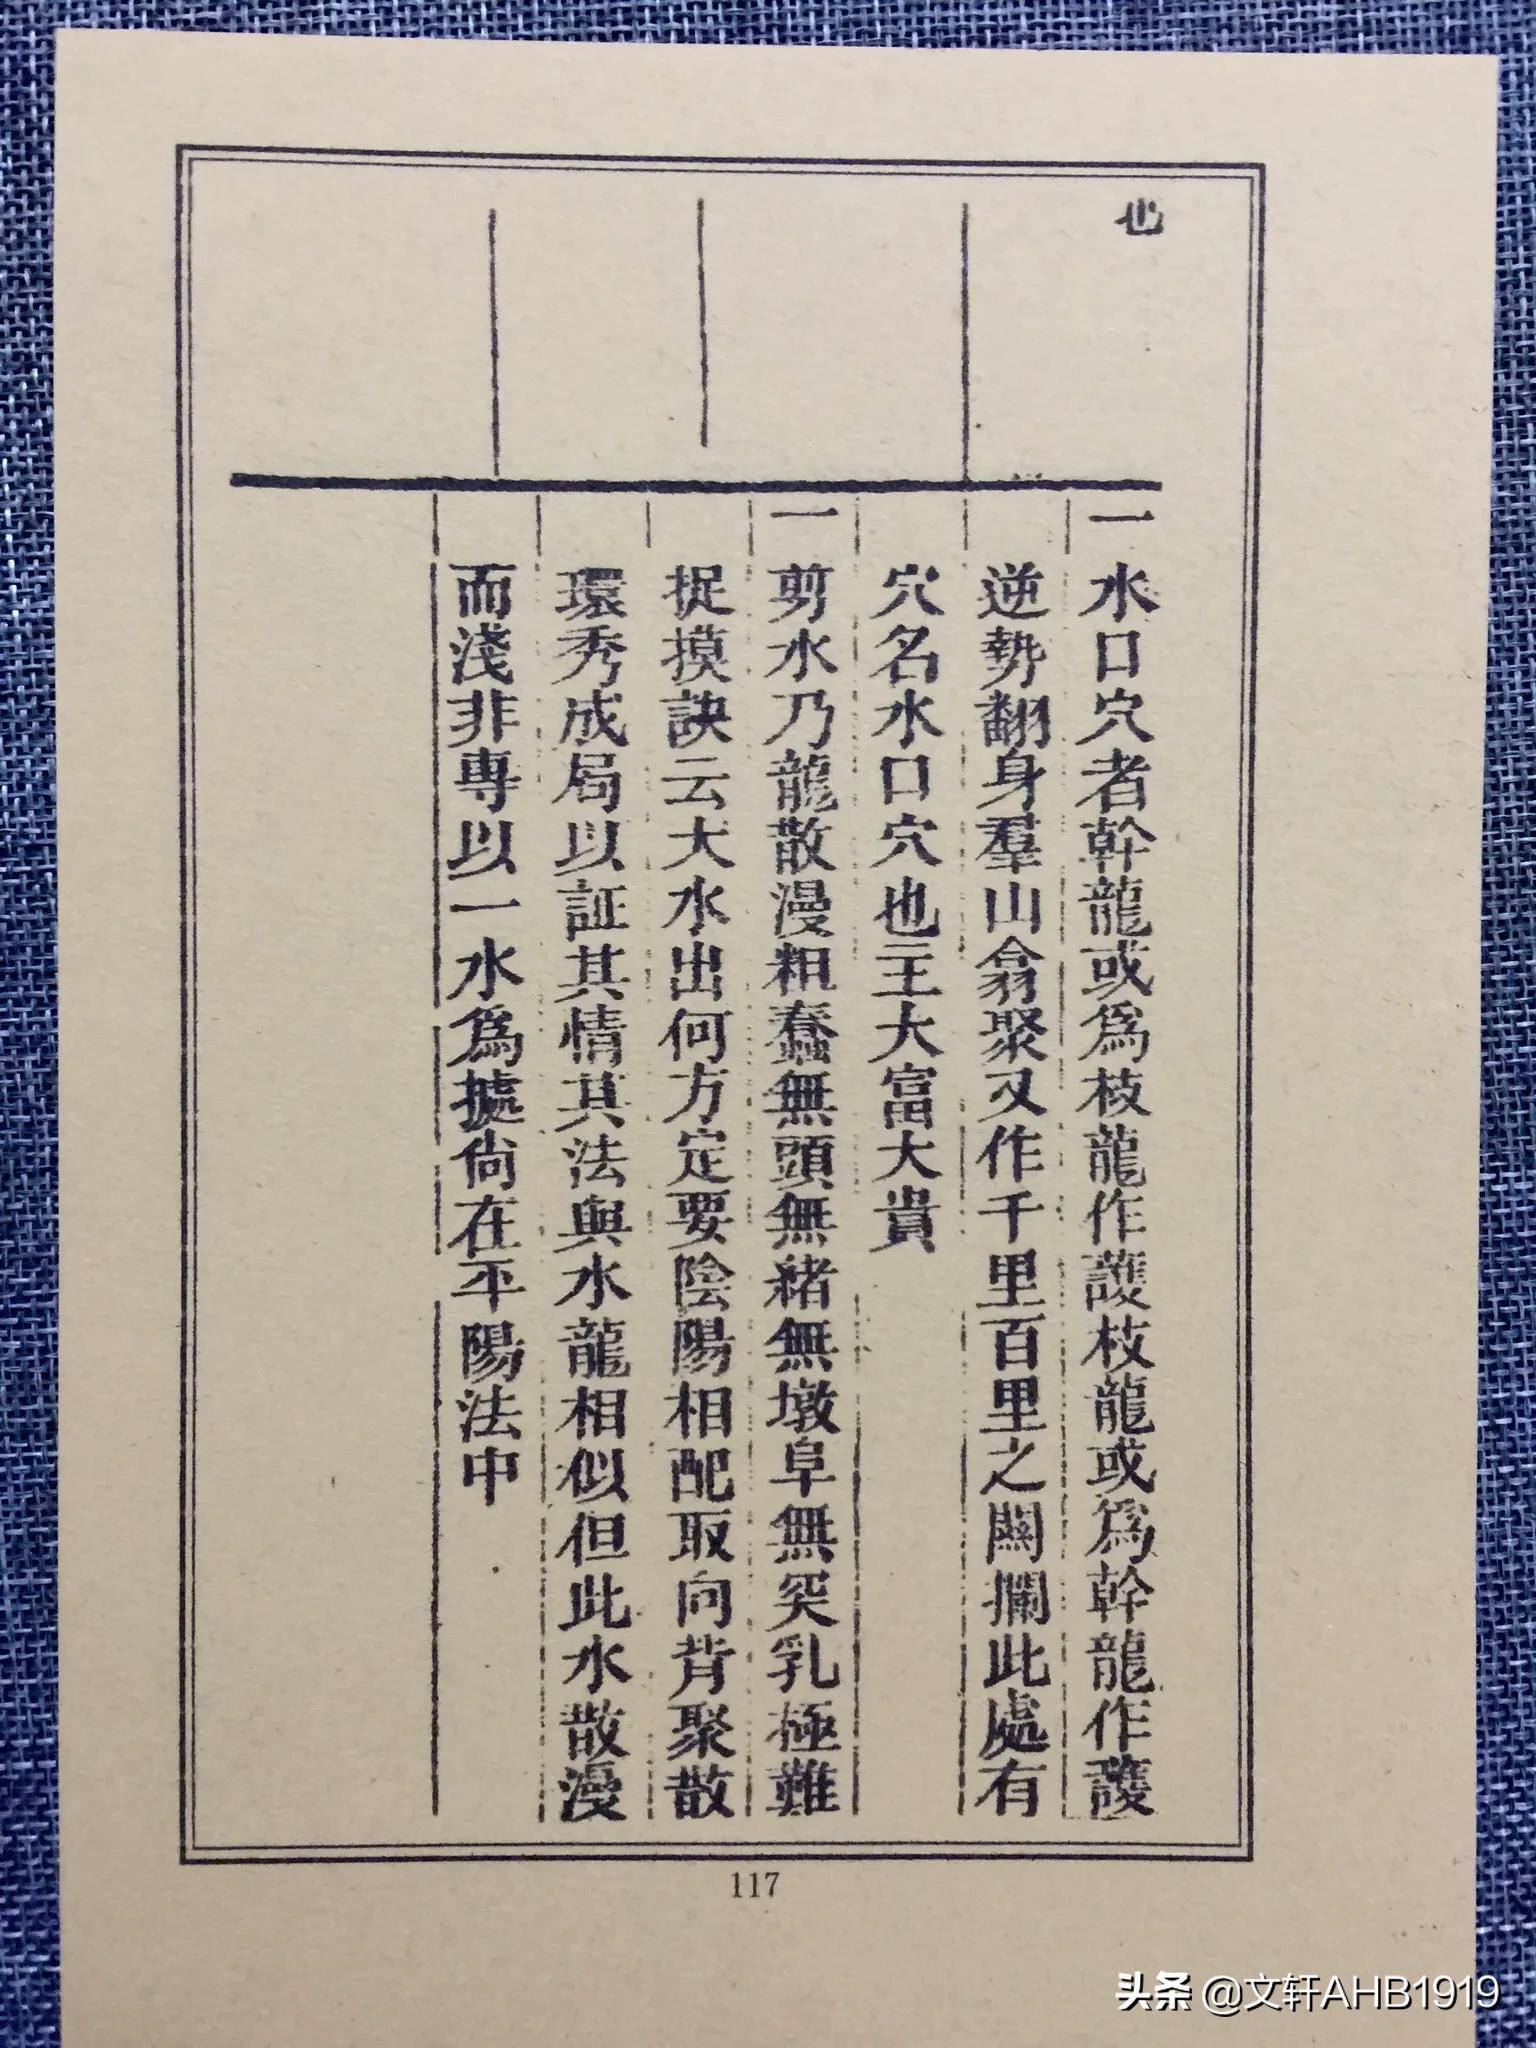 也
一水口穴者幹龍或爲枝龍作護枝龍或爲幹龍作護
逆勢翻身羣山翕聚又作千里百里之關攔此處有
穴名水口穴也主大富大貴
一剪水乃龍散漫粗蠢無頭無緒無墩阜無突乳極難
捉摸訣云大水出何方定要陰陽相配取向背聚散
環秀成局以証其情其法與水龍相似但此水散漫
而淺非專以一水爲據尙在平陽法中
117
头条 @文轩AHB1919